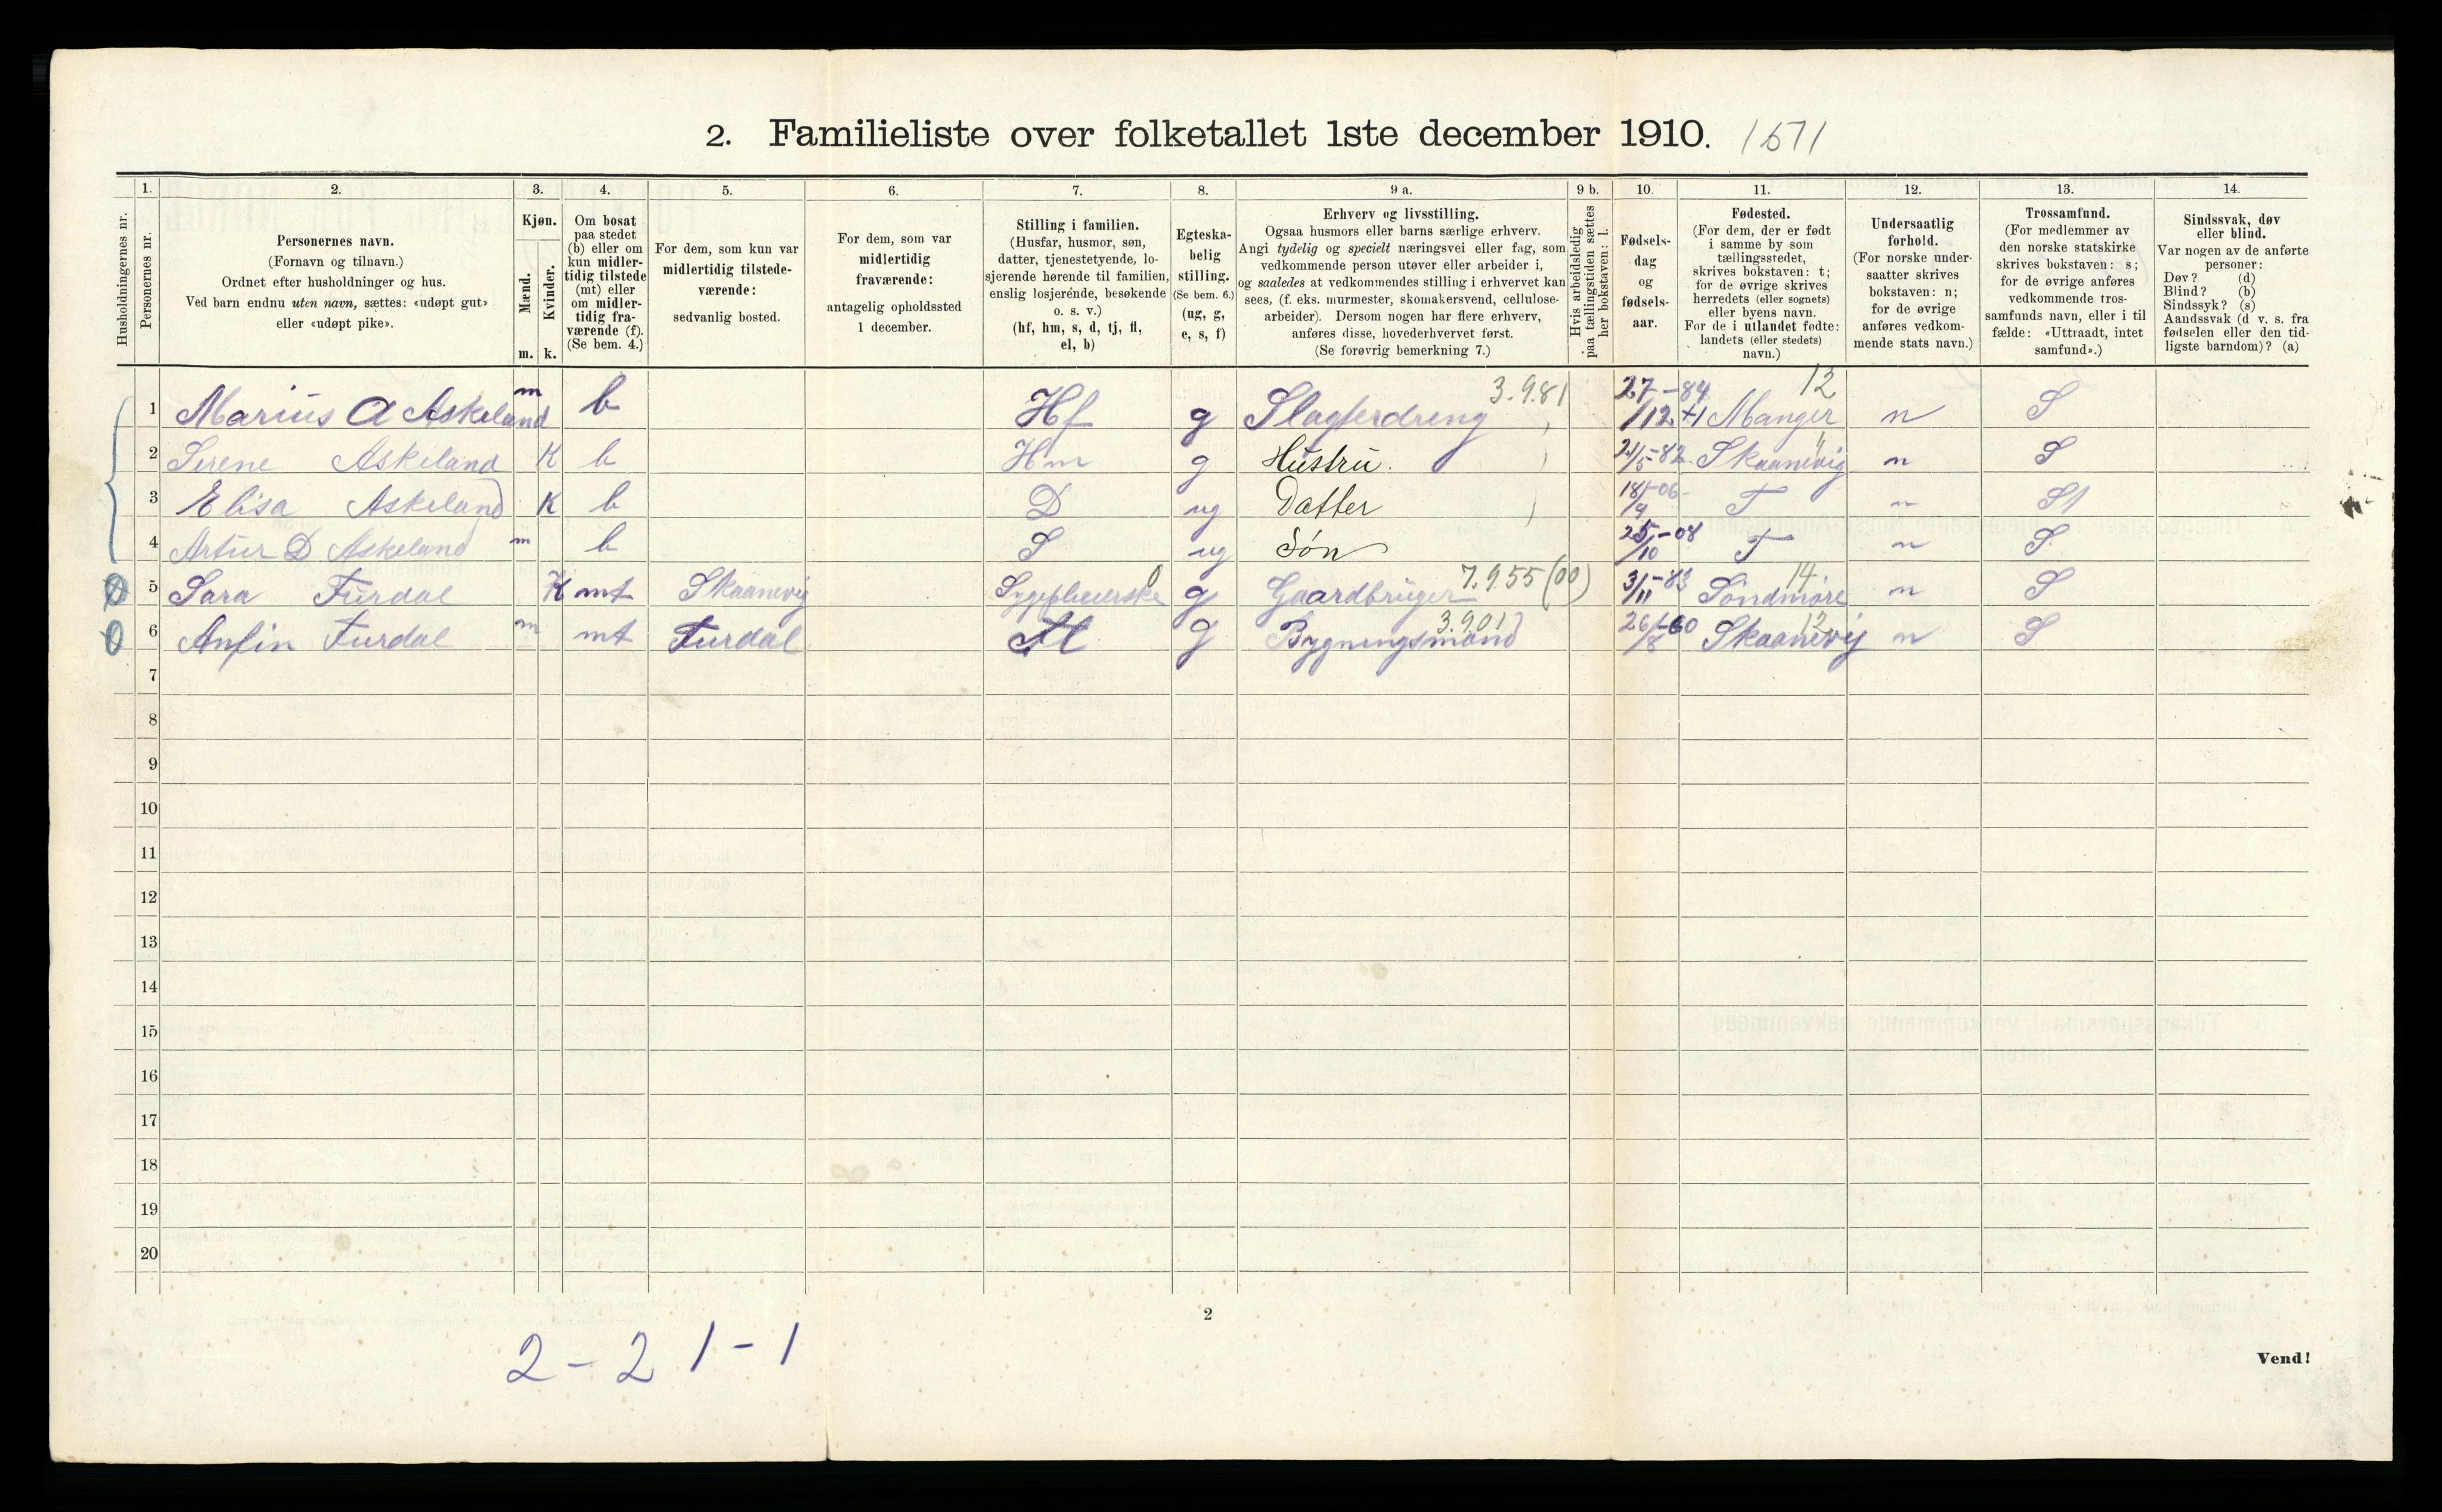 2. Familieliste over folketallet 1ste december 1910. 1571
Husholdningernes nr.
1. Personernes nr.
2. Personernes navn. (Fornavn og tilnavn.) Ordnet efter husholdninger og hus. Ved barn endnu uten navn, sættes: «udøpt gut» eller «udøpt pike».
3. Kjøn. Mænd. m. Kvinder. k.
4. Om bosat paa stedet (b) eller om kun midlertidig tilstede (mt) eller om midlertidig fraværende (f). (Se bem. 4.)
5. For dem, som kun var midlertidig tilstedeværende: sedvanlig bosted.
6. For dem, som var midlertidig fraværende: antagelig opholdssted 1 december.
7. Stilling i familien. (Husfar, husmor, søn, datter, tjenestetyende, losjerende hørende til familien, enslig losjerende, besøkende o. s. v.) (hf, hm, s, d, tj, fl, el, b)
8. Egteskabelig stilling. (Se bem. 6.) (ug, g, e, s, f)
9 a. Erhverv og livsstilling. Ogsaa husmors eller barns særlige erhverv. Angi tydelig og specielt næringsvei eller fag, som vedkommende person utøver eller arbeider i, og saaledes at vedkommendes stilling i erhvervet kan sees, (f. eks. murmester, skomakersvend, cellulosearbeider). Dersom nogen har flere erhverv, anføres disse, hovederhvervet først. (Se forøvrig bemerkning 7.)
9 b. Hvis arbeidsledig paa tællingstiden sættes her bokstaven: l.
10. Fødselsdag og fødselsaar.
11. Fødested. (For dem, der er født i samme by som tællingsstedet, skrives bokstaven: t; for de øvrige skrives herredets (eller sognets) eller byens navn. For de i utlandet fødte: landets (eller stedets) navn.)
12. Undersaatlig forhold. (For norske undersaatter skrives bokstaven: n; for de øvrige anføres vedkommende stats navn.)
13. Trossamfund. (For medlemmer av den norske statskirke skrives bokstaven: s; for de øvrige anføres vedkommende trossamfunds navn, eller i tilfælde: «Uttraadt, intet samfund».)
14. Sindssvak, døv eller blind. Var nogen av de anførte personer: Døv? (d) Blind? (b) Sindssyk? (s) Aandssvak (d v. s. fra fødselen eller den tidligste barndom)? (a)
1 Marius A Askeland m b Hf g Slagterdreng 3.9.81 27/12-84 Manger 12 n S
2 Serene Askeland K b Hm g Hustru. 21/5-82 Skaanevig " n S
3 Elisa Askeland K b D ug Datter 18/9-06 T n St
4 Artur D Askeland m b S ug Søn 25/10-08 T n S
5 Sara Furdal K mt Skaanevig g Gaardbruger 7.9.55 (00) 3/11-83 Søndmøre 14 n S
6 Anfin Furdal m mt Furdal g Bygningsmand 3.9.01 26/8-60 Skaanevig 12 n S
7
8
9
10
11
12
13
14
15
16
17
18
19
20
2
2 - 2 1 - 1
Vend!